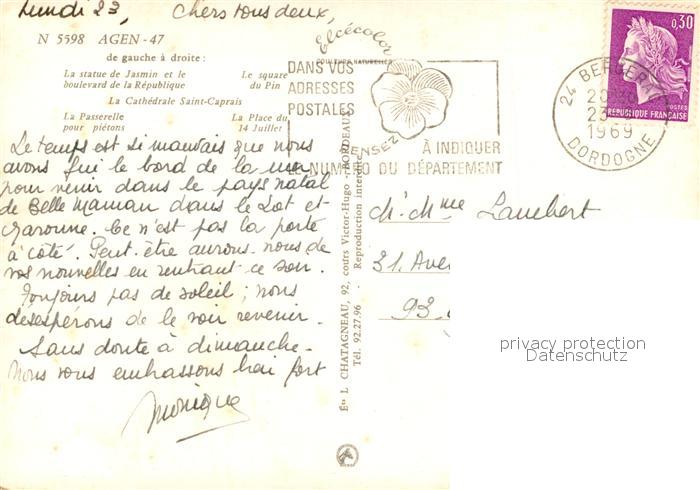 Lundi 23, Chers tous deux,
N 5598 AGEN-47
de gauche à droite :
La statue de Jasmin et le boulevard de la République
Le square du Pin
La Cathédrale Saint-Caprais
La Passerelle pour piétons
La Place du 14 Juillet
Le temps est si mauvais que nous
avons fui le bord de la mer
pour venir dans le pays natal
de Belle Maman dans le Lot et
Garonne. Ce n'est pas la porte
à côté. Peut-être aurons-nous de
vos nouvelles en rentrant ce soir.
Toujours pas de soleil ; nous
désespérons de le voir revenir.
Sans doute à dimanche.
Nous vous embrassons bien fort
Monique
Elcécolor
COULEURS NATURELLES
DANS VOS
ADRESSES
POSTALES
PENSEZ
À INDIQUER
LE NUMÉRO DU DÉPARTEMENT
24 BERGERAC
23
1969
DORDOGNE
0,30
POSTES
RÉPUBLIQUE FRANÇAISE
Éts L. CHATAGNEAU, 92, cours Victor-Hugo - BORDEAUX
Tél. 92.27.96 - Reproduction interdite
M. Mme Lambert
31. Ave
93.
privacy protection
Datenschutz